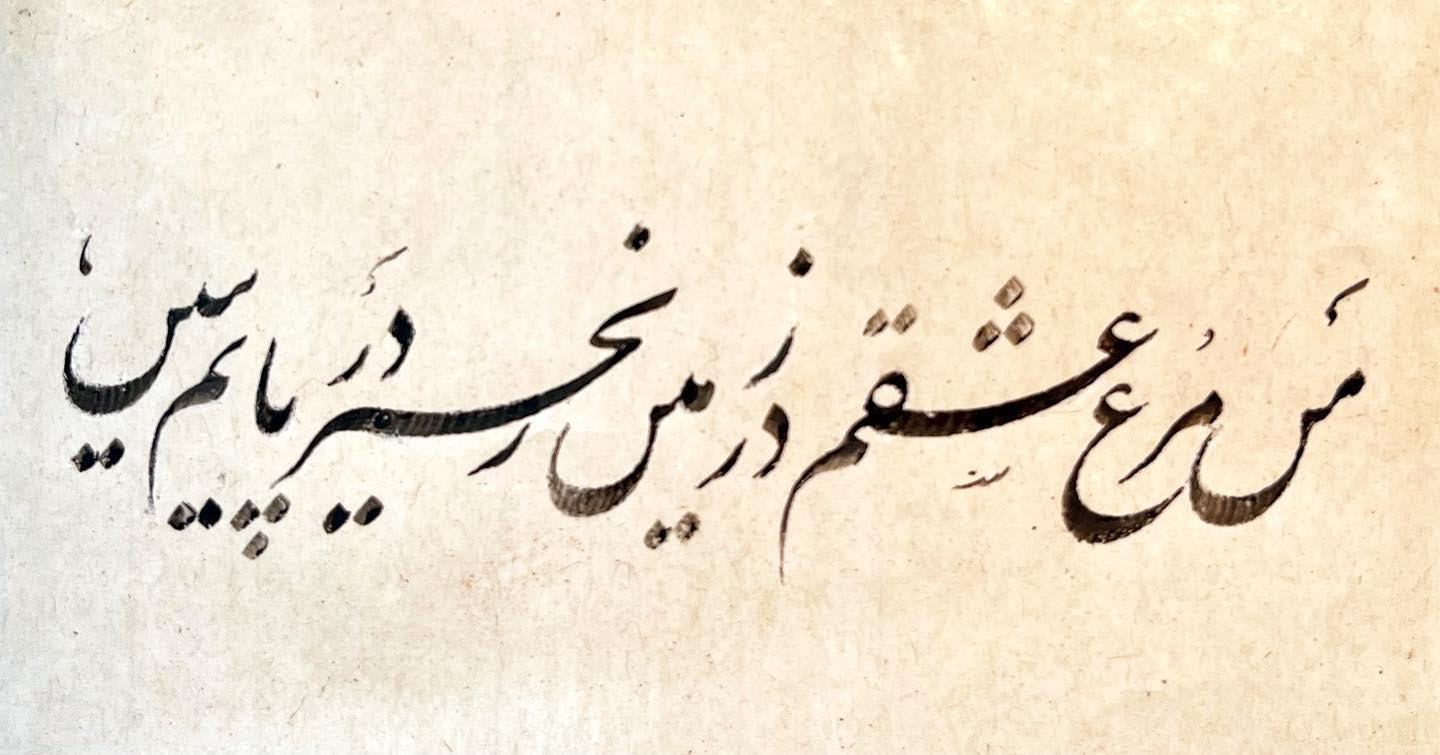 من مرغ عشقم در زمین زنجیر در پایم ببین